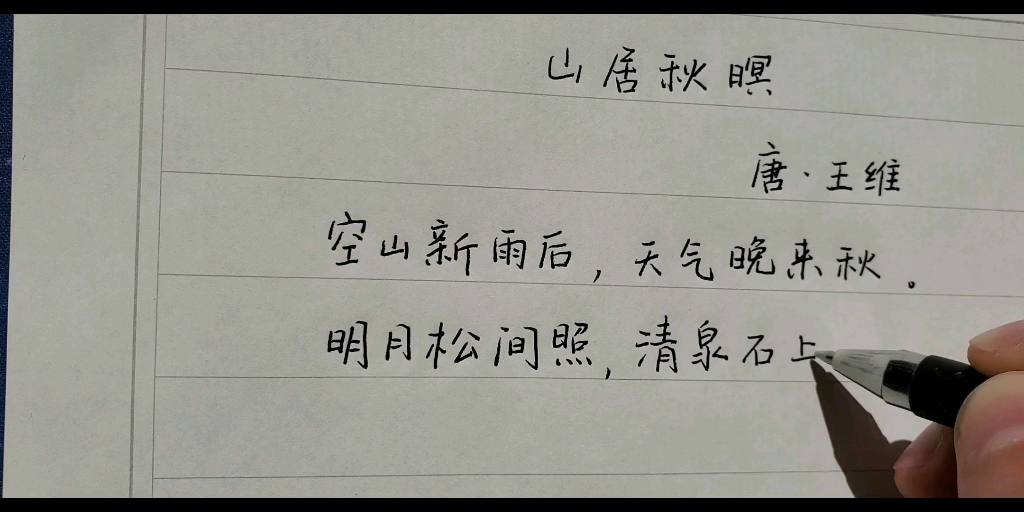 山居秋暝
唐·王维
空山新雨后,天气晚来秋。
明月松间照,清泉石上